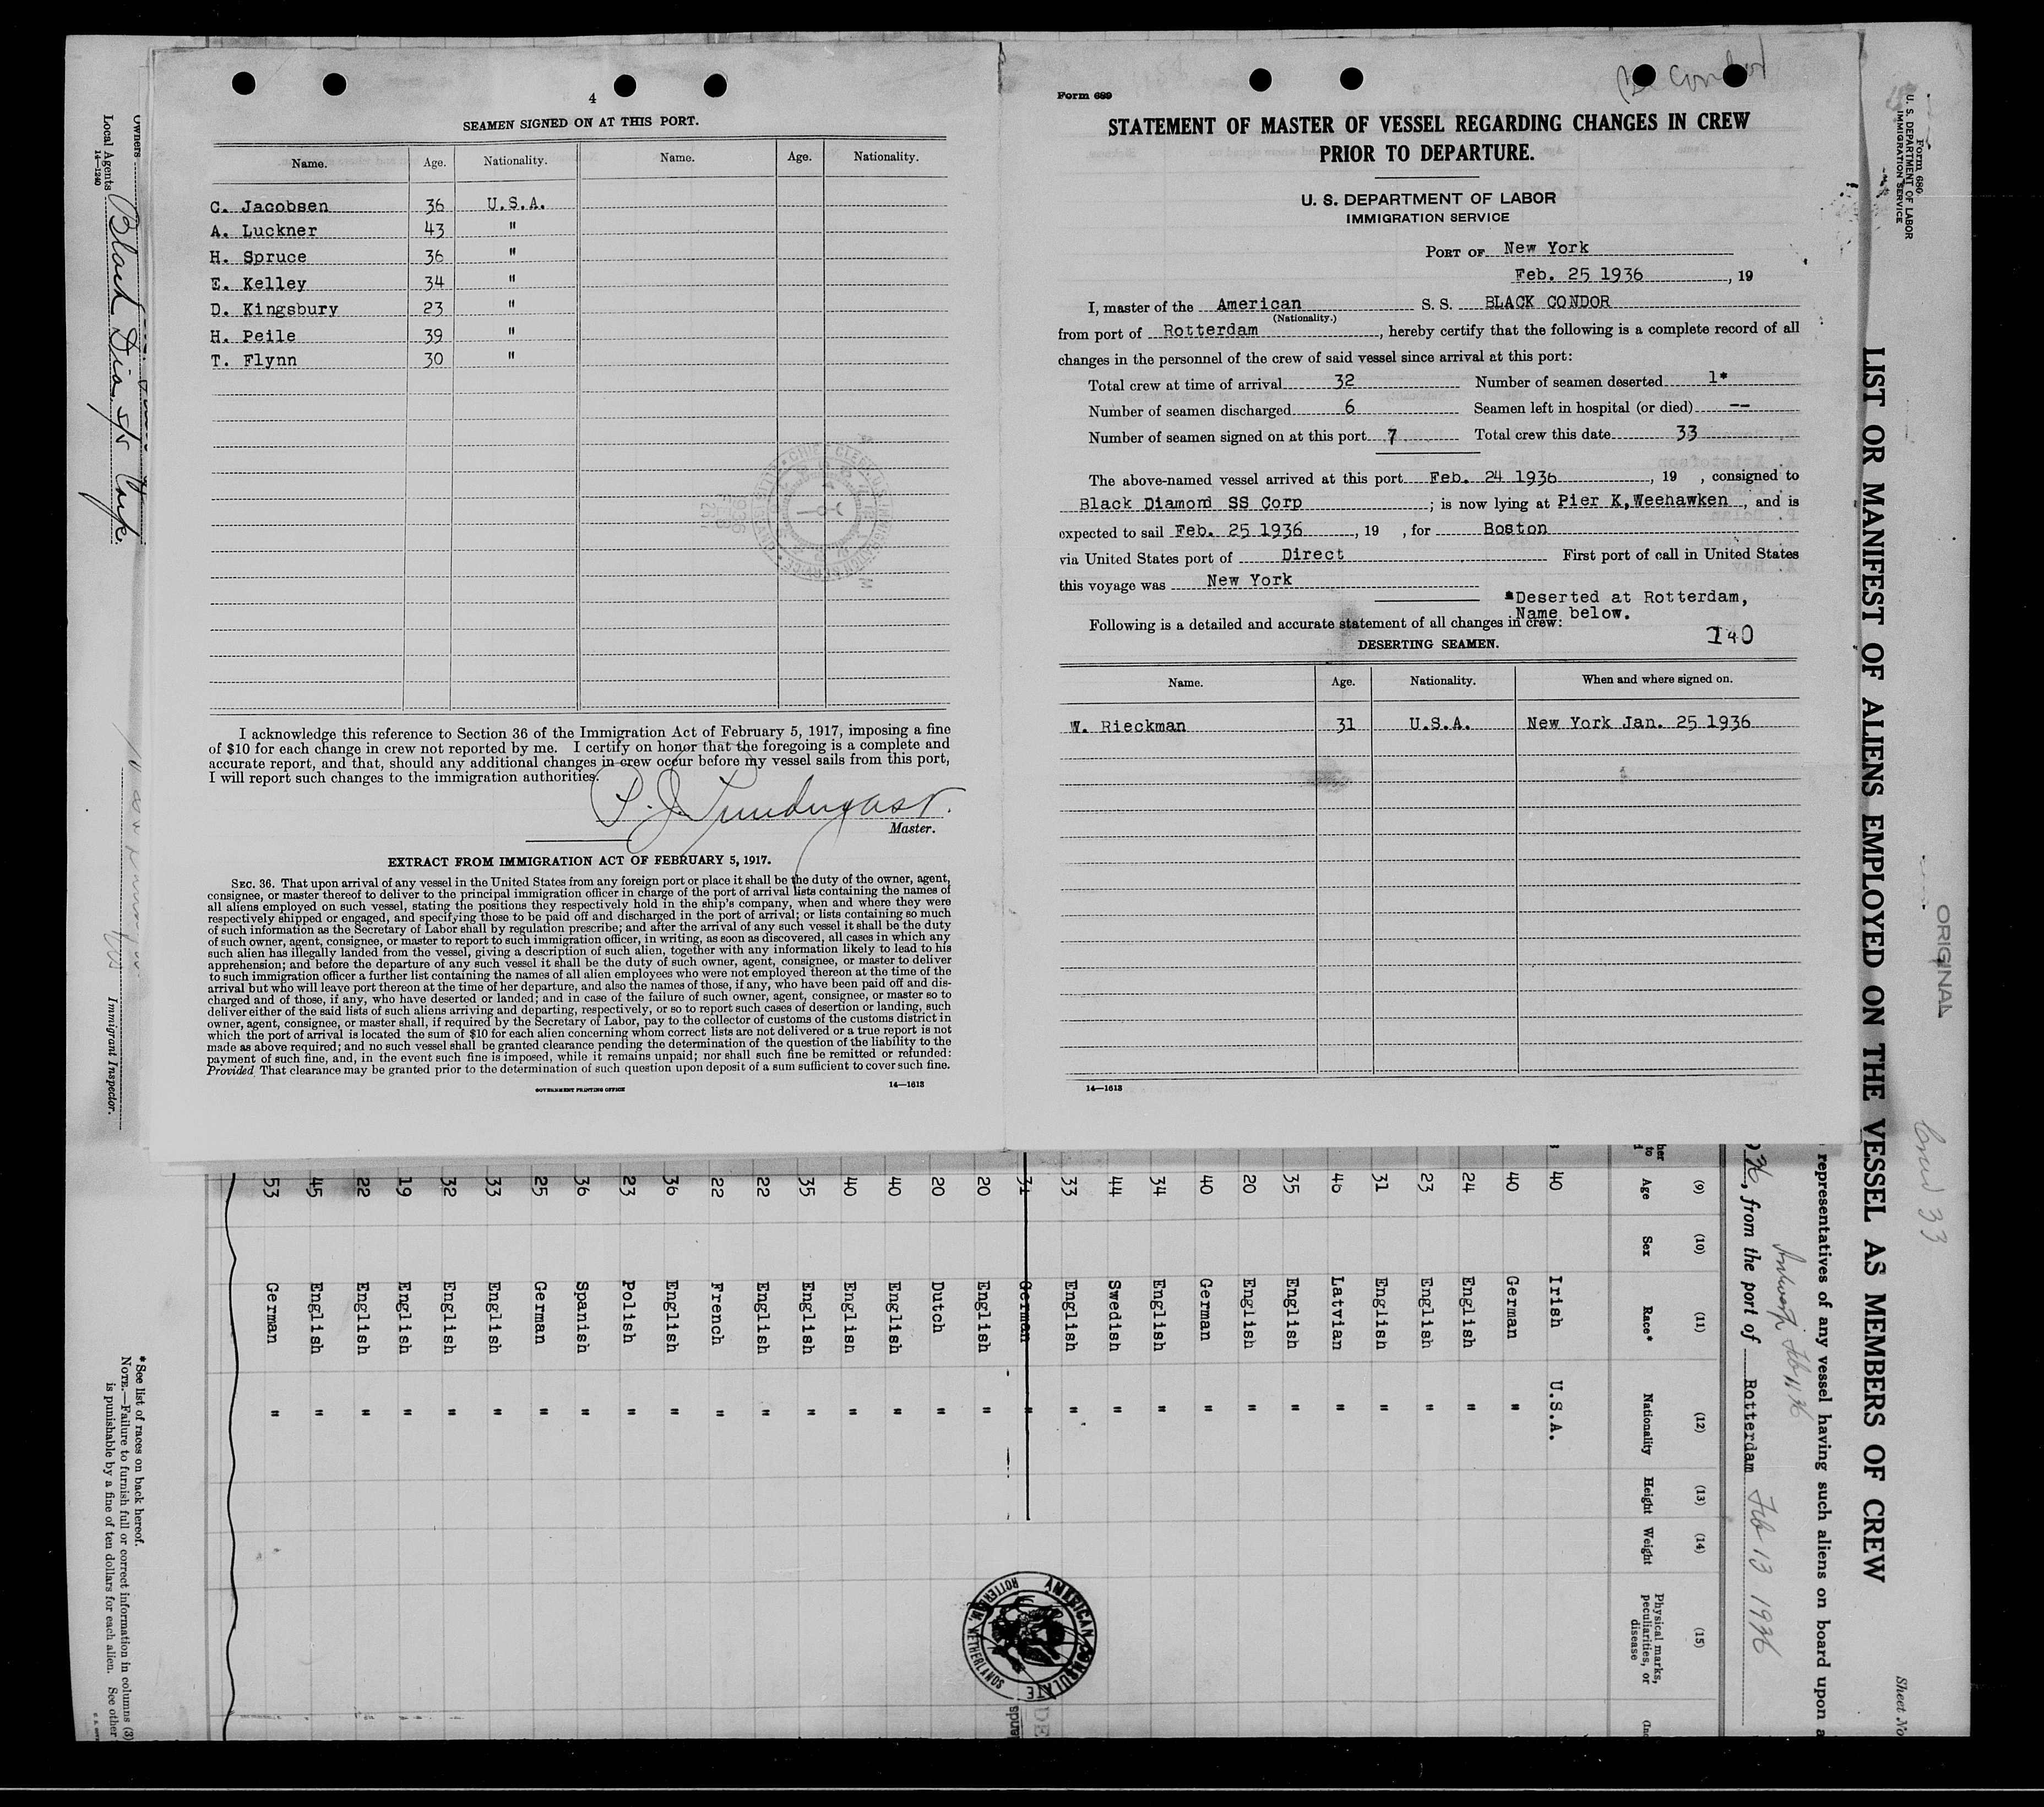 4
SEAMEN SIGNED ON AT THIS PORT.
Name. Age. Nationality. Name. Age. Nationality.
C. Jacobsen 36 U.S.A.
A. Luckner 43 "
H. Spruce 36 "
E. Kelley 34 "
D. Kingsbury 23 "
H. Peile 39 "
T. Flynn 30 "
I acknowledge this reference to Section 36 of the Immigration Act of February 5, 1917, imposing a fine
of $10 for each change in crew not reported by me. I certify on honor that the foregoing is a complete and
accurate report, and that, should any additional changes in crew occur before my vessel sails from this port,
I will report such changes to the immigration authorities.
Master.
EXTRACT FROM IMMIGRATION ACT OF FEBRUARY 5, 1917.
SEC. 36. That upon arrival of any vessel in the United States from any foreign port or place it shall be the duty of the owner, agent,
consignee, or master thereof to deliver to the principal immigration officer in charge of the port of arrival lists containing the names of
all aliens employed on such vessel, stating the positions they respectively hold in the ship's company, when and where they were
respectively shipped or engaged, and specifying those to be paid off and discharged in the port of arrival; or lists containing so much
of such information as the Secretary of Labor shall by regulation prescribe; and after the arrival of any such vessel it shall be the duty
of such owner, agent, consignee, or master to report to such immigration officer, in writing, as soon as discovered, all cases in which any
such alien has illegally landed from the vessel, giving a description of such alien, together with any information likely to lead to his
apprehension; and before the departure of any such vessel it shall be the duty of such owner, agent, consignee, or master to deliver
to such immigration officer a further list containing the names of all alien employees who were not employed thereon at the time of the
arrival but who will leave port thereon at the time of her departure, and also the names of those, if any, who have been paid off and dis-
charged and of those, if any, who have deserted or landed; and in case of the failure of such owner, agent, consignee, or master so to
deliver either of the said lists of such aliens arriving and departing, respectively, or so to report such cases of desertion or landing, such
owner, agent, consignee, or master shall, if required by the Secretary of Labor, pay to the collector of customs of the customs district in
which the port of arrival is located the sum of $10 for each alien concerning whom correct lists are not delivered or a true report is not
made as above required; and no such vessel shall be granted clearance pending the determination of the question of the liability to the
payment of such fine, and, in the event such fine is imposed, while it remains unpaid; nor shall such fine be remitted or refunded:
Provided, That clearance may be granted prior to the determination of such question upon deposit of a sum sufficient to cover such fine.
GOVERNMENT PRINTING OFFICE 14—1613
Condor
Form 689
STATEMENT OF MASTER OF VESSEL REGARDING CHANGES IN CREW
PRIOR TO DEPARTURE.
U. S. DEPARTMENT OF LABOR
IMMIGRATION SERVICE
PORT OF New York
Feb. 25 1936, 19
I, master of the American S. S. BLACK CONDOR
(Nationality.)
from port of Rotterdam, hereby certify that the following is a complete record of all
changes in the personnel of the crew of said vessel since arrival at this port:
Total crew at time of arrival 32 Number of seamen deserted 1*
Number of seamen discharged 6 Seamen left in hospital (or died) --
Number of seamen signed on at this port 7 Total crew this date 33
The above-named vessel arrived at this port Feb. 24 1936, 19 , consigned to
Black Diamond SS Corp ; is now lying at Pier K, Weehawken, and is
expected to sail Feb. 25 1936, 19 , for Boston
via United States port of Direct First port of call in United States
this voyage was New York
*Deserted at Rotterdam,
Name below.
Following is a detailed and accurate statement of all changes in crew:
140
DESERTING SEAMEN.
Name. Age. Nationality. When and where signed on.
W. Rieckman 31 U.S.A. New York Jan. 25 1936
14—1613
Form 680
U. S. DEPARTMENT OF LABOR
IMMIGRATION SERVICE
ORIGINAL
Crew 33
Sheet No
LIST OR MANIFEST OF ALIENS EMPLOYED ON THE VESSEL AS MEMBERS OF CREW
representatives of any vessel having such aliens on board upon a
Antwerp Feb 11 36
36, from the port of Rotterdam Feb 13 1936
(9) (10) (11) (12) (13) (14) (15)
Age Sex Race* Nationality Height Weight Physical marks, peculiarities, or disease
40 Irish U.S.A.
40 German "
24 English "
23 English "
31 English "
46 Latvian "
35 English "
20 English "
40 German "
34 English "
44 Swedish "
33 English "
31 German "
20 English "
20 Dutch "
40 English "
40 English "
35 English "
22 English "
22 French "
36 English "
23 Polish "
36 Spanish "
25 German "
33 English "
32 English "
19 English "
22 English "
45 English "
53 German "
AMERICAN CONSULATE
ROTTERDAM, NETHERLANDS
*See list of races on back hereof.
NOTE.—Failure to furnish full or correct information in columns (3)
is punishable by a fine of ten dollars for each alien. See other
Immigrant Inspector.
Owners
Local Agents Black Diam. S/S Corp.
14—1240